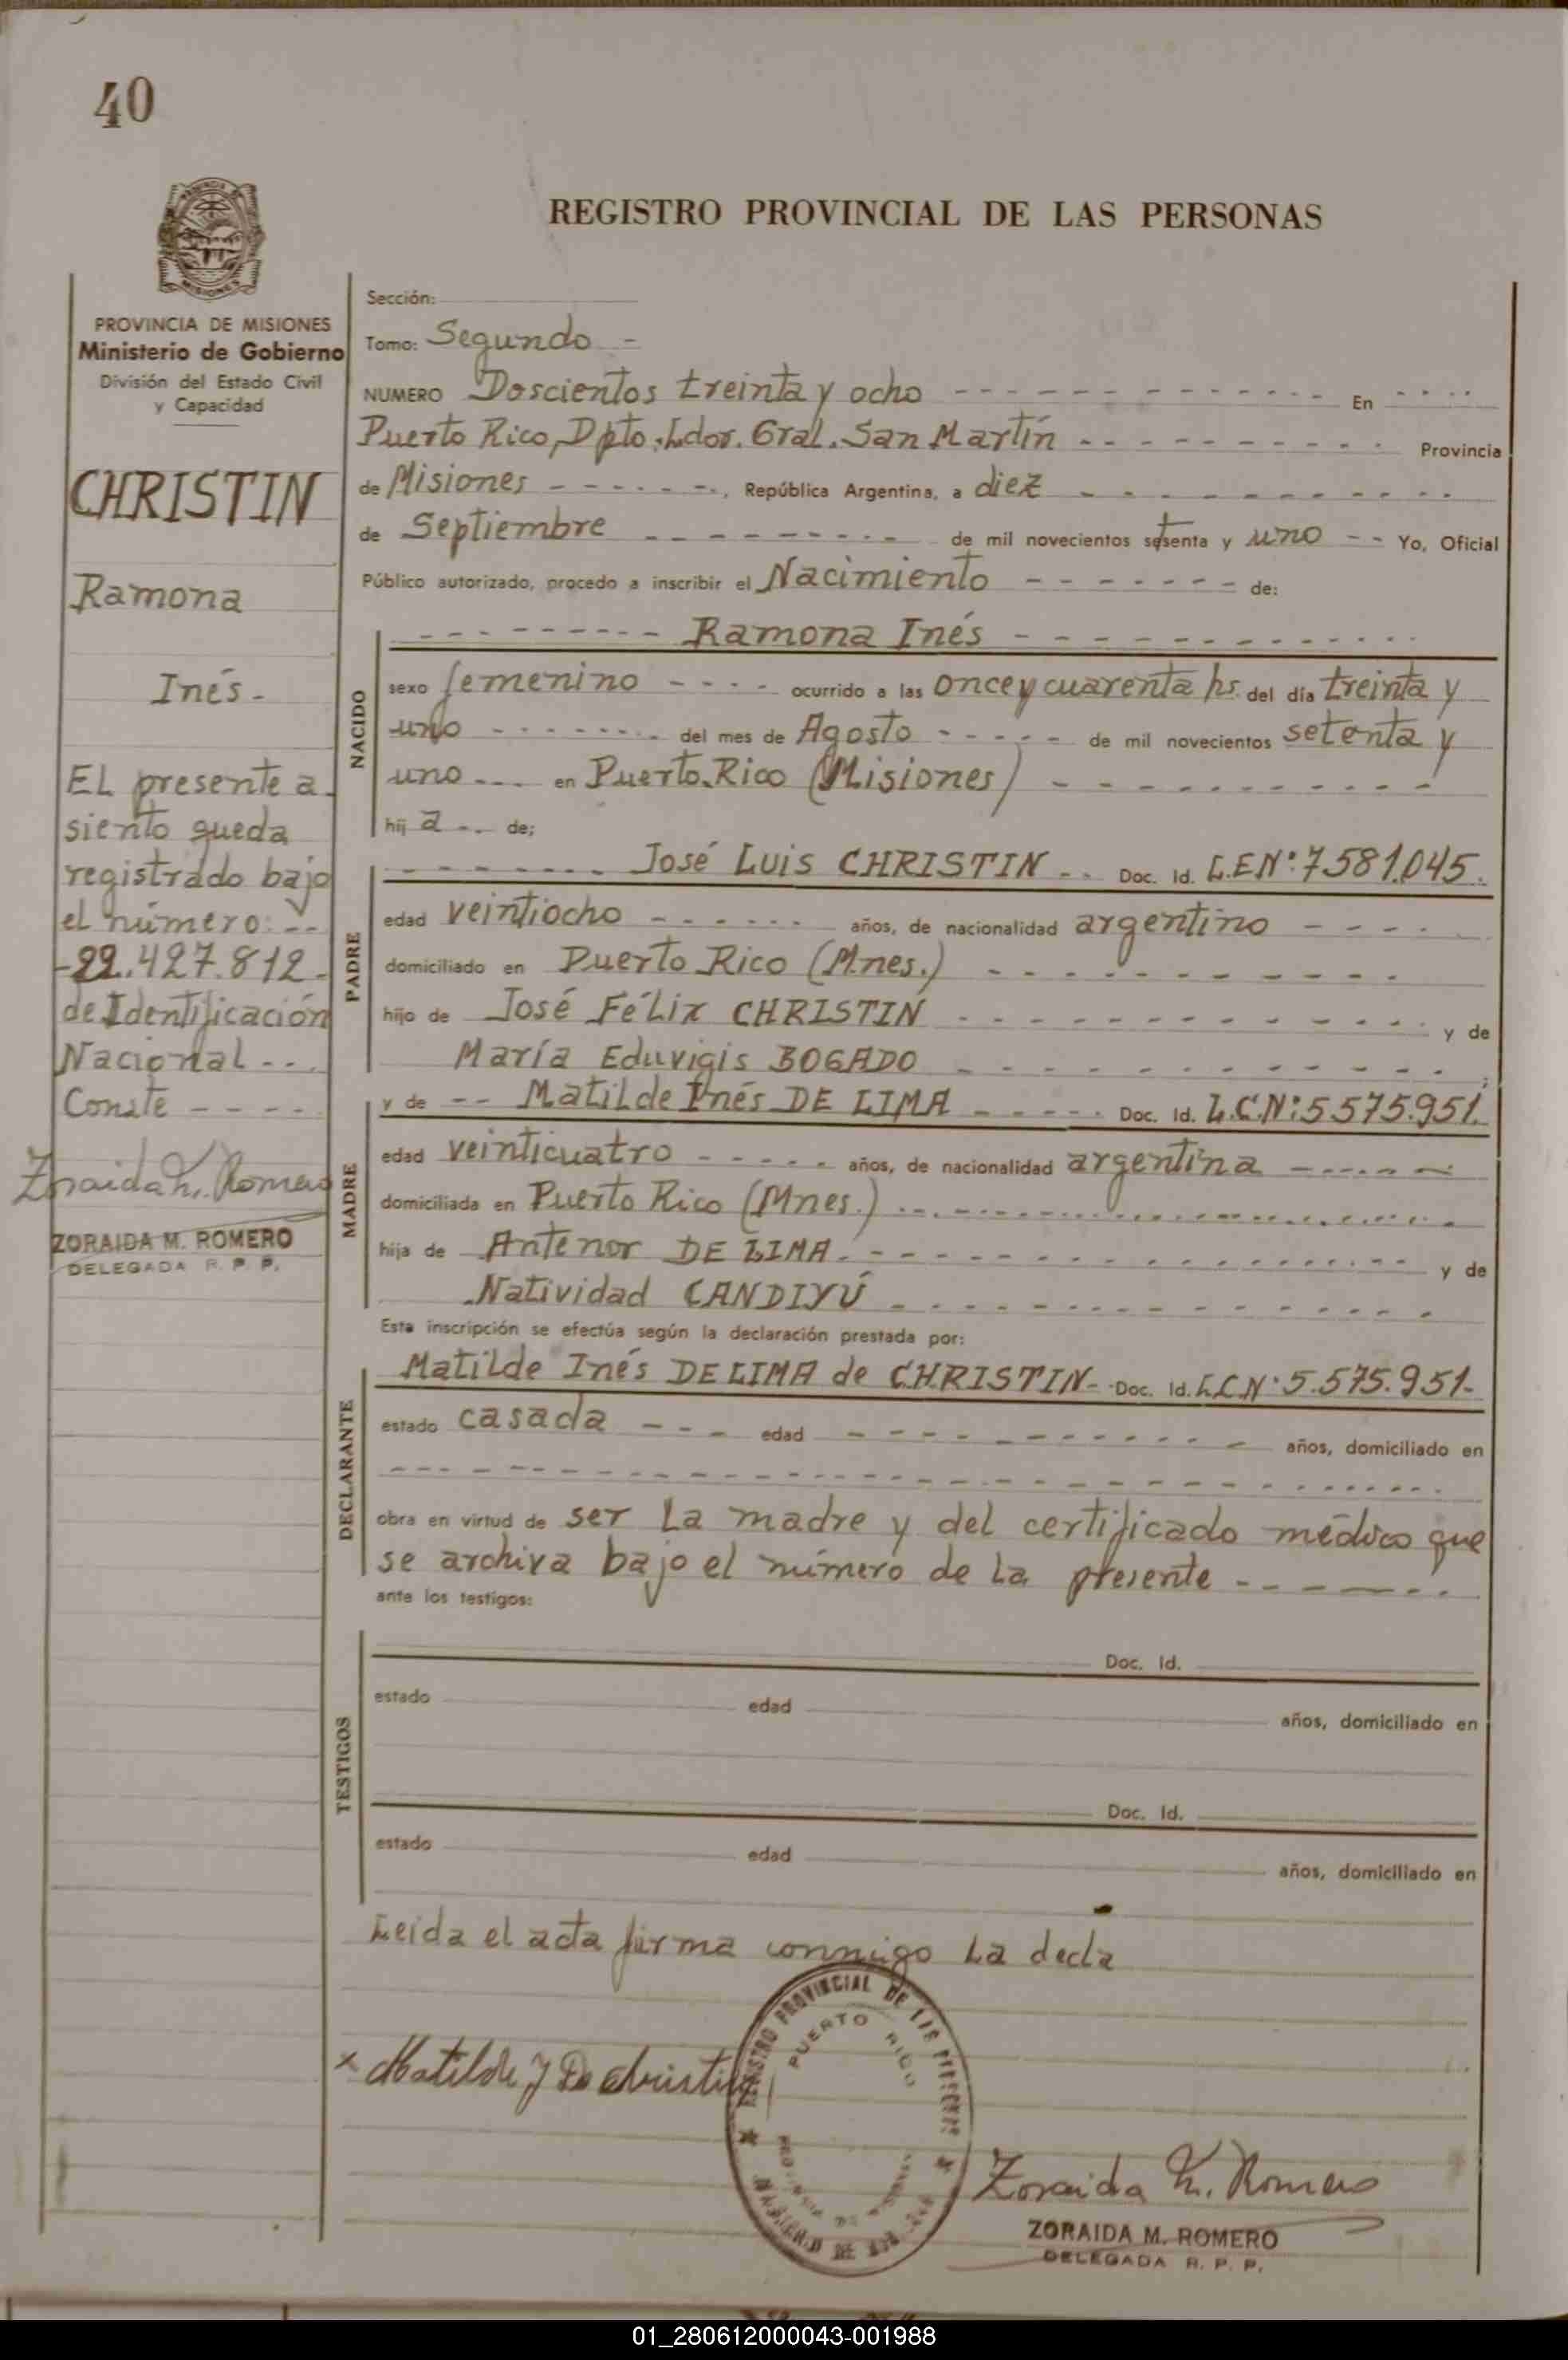 40
REGISTRO PROVINCIAL DE LAS PERSONAS
PROVINCIA DE MISIONES
Ministerio de Gobierno
División del Estado Civil
y Capacidad
CHRISTIN
Ramona
Inés-
EL presente a-
siento queda
registrado bajo
el número: --
-22.427.812-
de Identificación
Nacional ---
Conste ----
Zoraida M. Romero
ZORAIDA M. ROMERO
DELEGADA R. P. P.
Sección:
Tomo: Segundo -
NUMERO Doscientos treinta y ocho --- En ---
Puerto Rico, Dpto. Ldor. Gral. San Martín --- Provincia
de Misiones ---, República Argentina, a diez ---
de Septiembre --- de mil novecientos setenta y uno -- Yo, Oficial
Público autorizado, procedo a inscribir el Nacimiento --- de:
NACIDO
--- Ramona Inés ---
sexo femenino ---- ocurrido a las once y cuarenta hs. del día treinta y
uno --- del mes de Agosto --- de mil novecientos setenta y
uno --- en Puerto Rico (Misiones) ---
hij a -- de;
PADRE
--- José Luis CHRISTIN -- Doc. Id. L.E.Nº: 7581.045.
edad veintiocho --- años, de nacionalidad argentino ---
domiciliado en Puerto Rico (Mnes.) ---
hijo de José Félix CHRISTIN --- y de
María Eduvigis BOGADO ---
MADRE
y de -- Matilde Inés DE LIMA --- Doc. Id. L.C.Nº: 5575.951.
edad veinticuatro --- años, de nacionalidad argentina ---
domiciliada en Puerto Rico (Mnes.) ---
hija de Antenor DE LIMA --- y de
Natividad CANDIYÚ ---
Esta inscripción se efectúa según la declaración prestada por:
DECLARANTE
Matilde Inés DE LIMA de CHRISTIN- Doc. Id. L.C.Nº 5.575.951-
estado casada --- edad --- años, domiciliado en
---
obra en virtud de ser La madre y del certificado médico que
se archiva bajo el número de la presente ---
ante los testigos:
TESTIGOS
Doc. Id.
estado edad años, domiciliado en
Doc. Id.
estado edad años, domiciliado en
Leida el acta firma conmigo La decla
x Matilde I De Christin
REGISTRO PROVINCIAL DE LAS PERSONAS
PUERTO RICO
PROVINCIA DE MISIONES
ZORAIDA M. ROMERO
Zoraida M. Romero
DELEGADA R. P. P.
01_280612000043-001988